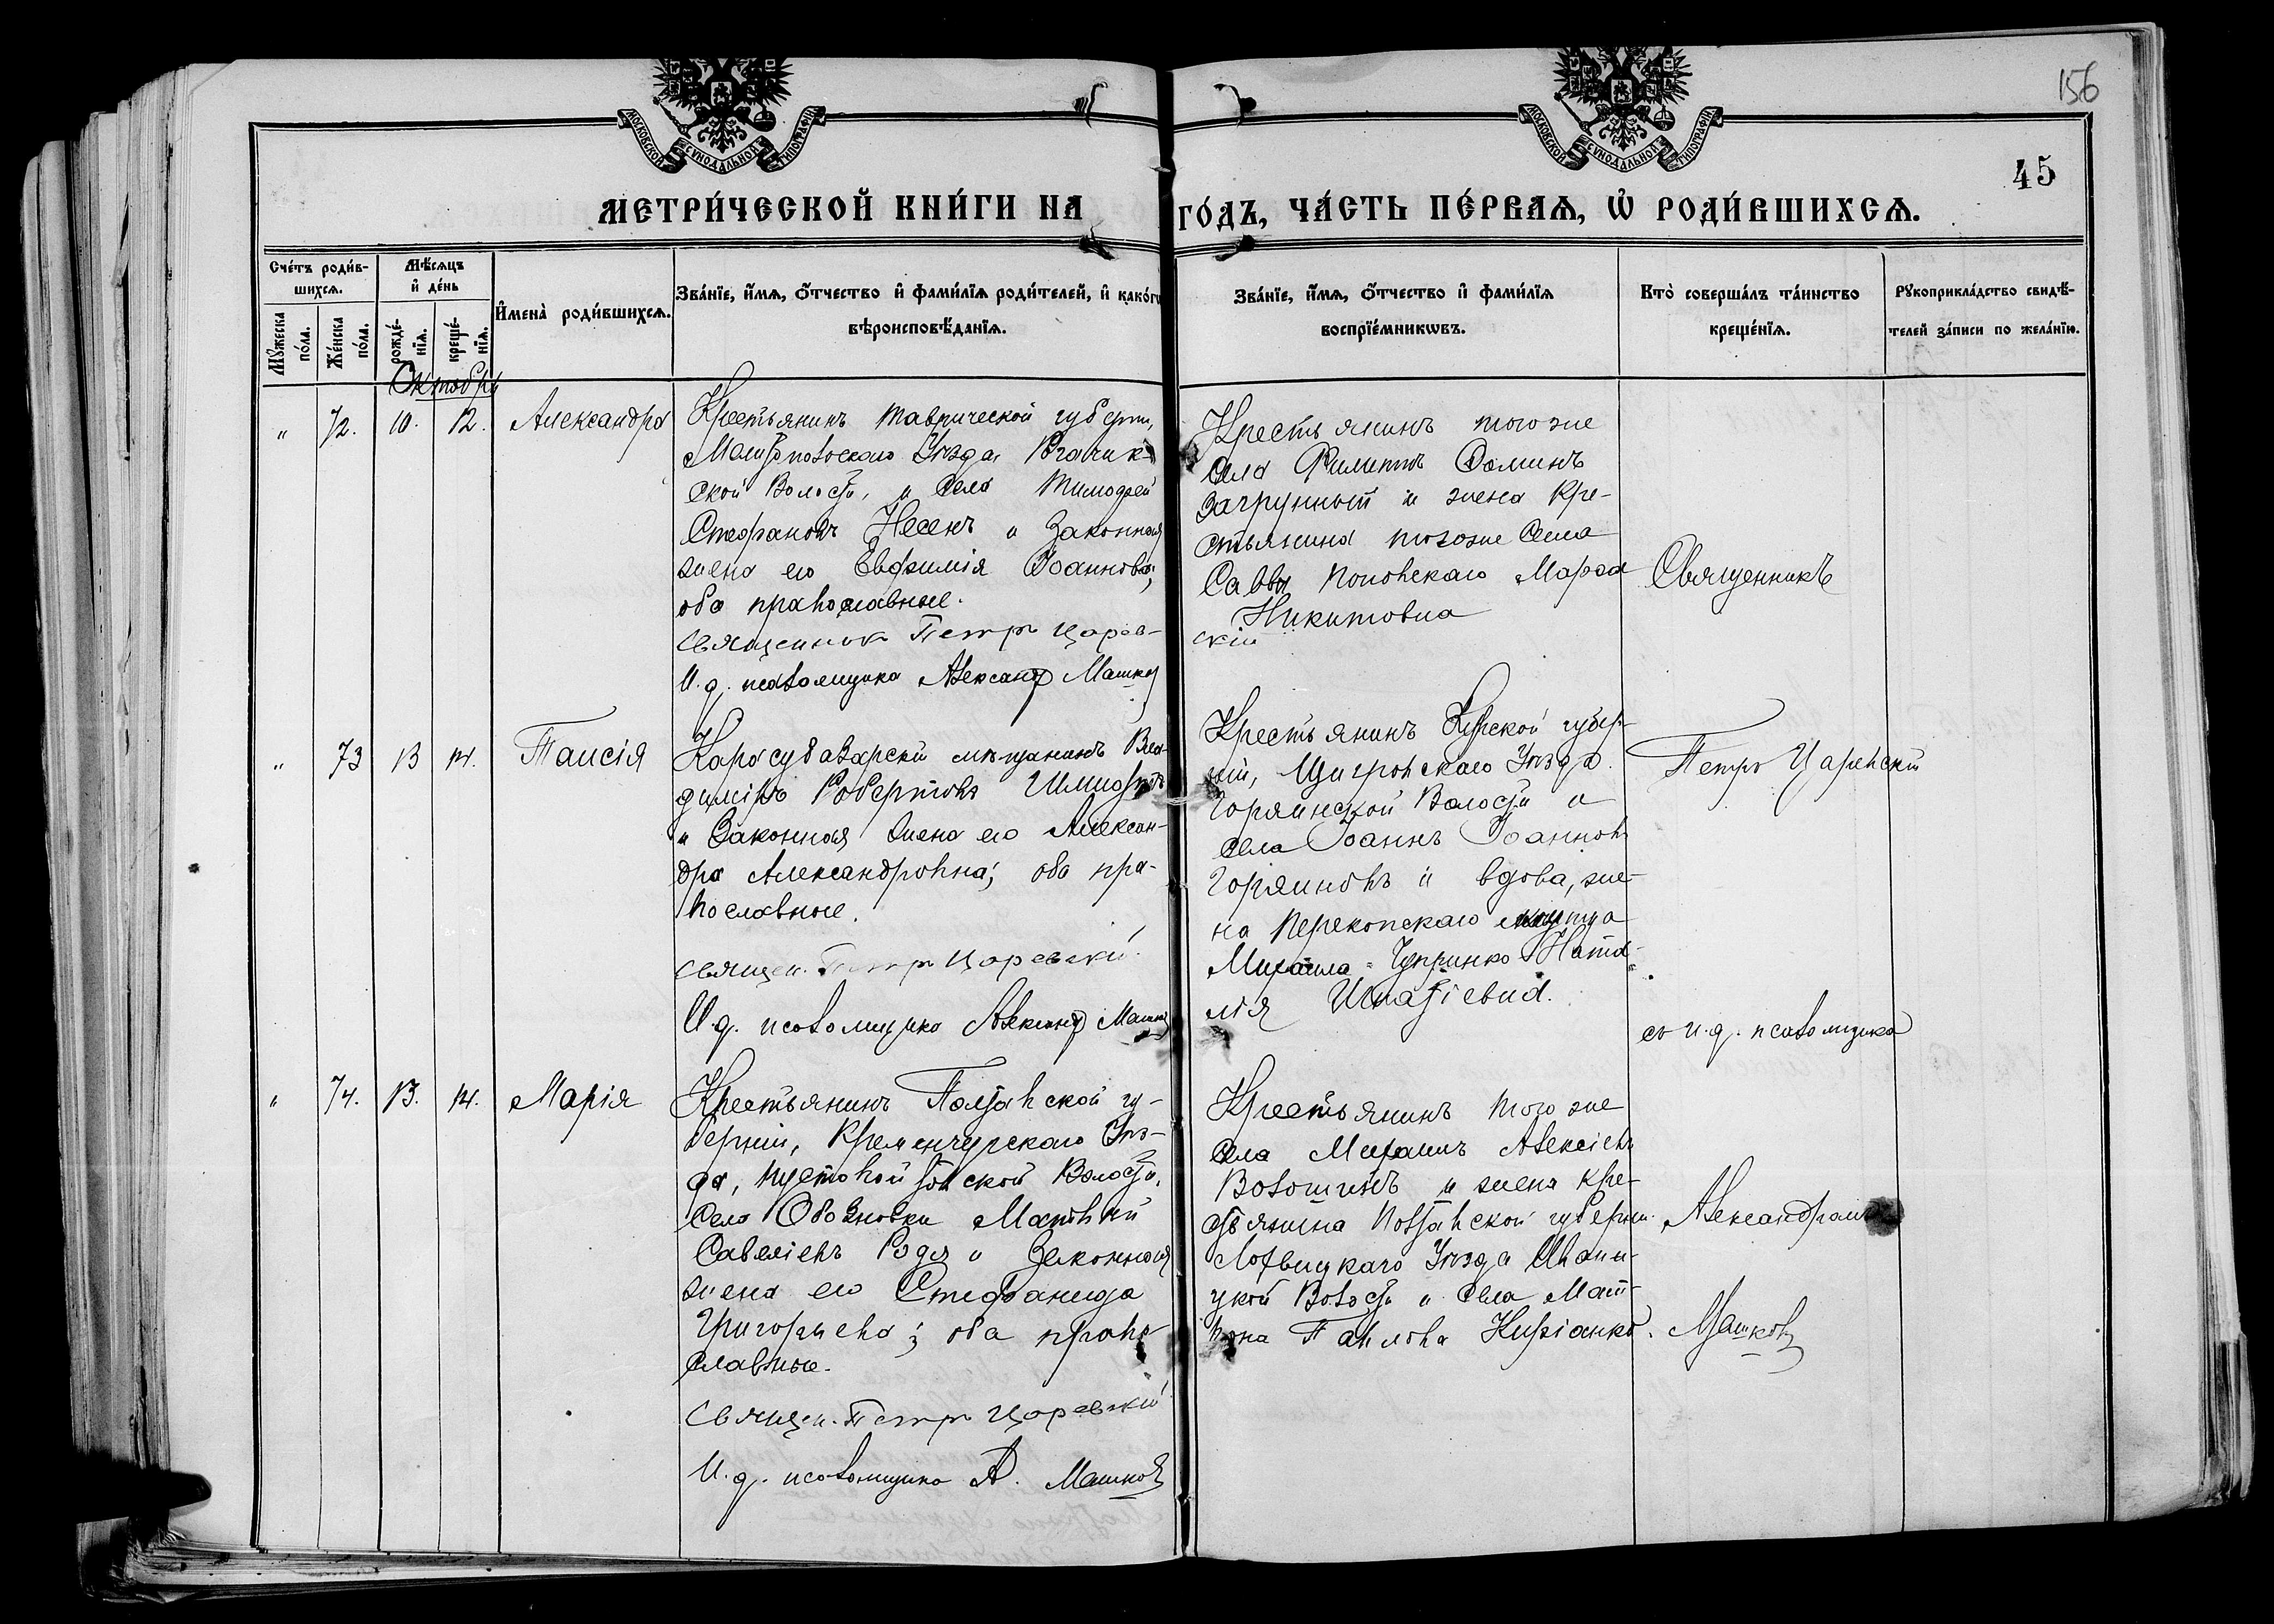 156
45
МОСКОВСКОЙ СѴНОДАЛЬНОЙ ТИПОГРАФІИ
МОСКОВСКОЙ СѴНОДАЛЬНОЙ ТИПОГРАФІИ
МЕТРИ́ЧЕСКОЙ КНИ́ГИ НА ГО́ДЪ, ЧА́СТЬ ПЕ́РВАѦ, Ѡ҆ РОДИ́ВШИХСѦ.
Сче́тъ роди́в-
шихсѧ.
Мꙋ́жеска по́ла.
Же́нска по́ла.
Мѣ́сѧцъ
и҆ де́нь
рожде́-
нїѧ.
креще́-
нїѧ.
И҆мена̀ роди́вшихсѧ.
Зва́нїе, и҆́мѧ, ѻ҆́тчество и҆ фами́лїѧ роди́телей, и҆ како́гѡ
вѣроисповѣ́данїѧ.
Зва́нїе, и҆́мѧ, ѻ҆́тчество и҆ фами́лїѧ
воспрїе́мникѡвъ.
Кто̀ соверша́лъ та́инство
креще́нїѧ.
Рꙋкоприкла́дство свидѣ́-
телей за́писи по жела́нїю.
Октобрь
" 72. 10. 12. Александра
Крестьянинъ Таврической губерн,
Мелитопольскаго Уѣзда, Рогачик-
ской Волости, и Села Тимофей
Стефановъ Несенъ и Законная
жена его Евфимія Іоаннова;
оба православные.
Священник Петр Царев-
скій
И. д. псаломщика Александр Машков
Крестьянинъ того же
села Филиппъ Фоминъ
Загрунный и жена Кре-
стьянина того же Села
Саввы Поповскаго Марѳа
Никитовна
Священникъ
" 73 13 14. Таисія
Карасубазарскій мѣщанинъ Вла-
димиръ Робертовъ Шмидтъ
и Законная жена его Алексан-
дра Александровна; оба пра-
вославные.
Священ. Петр Царевский
И. д. псаломщика Александр Машков
Крестьянинъ Курской губер-
ніи, Щигровскаго Уѣзда
Горяинской Волости и
села Іоаннъ Іоанновъ
Горяиновъ и вдова, же-
на Перекопскаго купца
Михаила Чупринко Ната-
лія Игнатіевна.
Петръ Царевскій
съ и. д. псаломщика
" 74. 13. 14. Марія
Крестьянинъ Полтавской гу-
берніи, Кременчугскаго Уѣз-
да, Пустовойтовской Волости,
Села Обозновки Матвѣй
Савеліевъ Родя и Законная
жена его Стефанида
Григорьева; оба право-
славные.
Священ. Петр Царевский
И. д. псаломщика А. Машков
Крестьянинъ того же
села Михаилъ Алексіевъ
Волошинъ и жена Кре-
стьянина Полтавской губерніи
Лохвицкаго Уѣзда
Волости и Села
Павлова
Александромъ
Машковъ